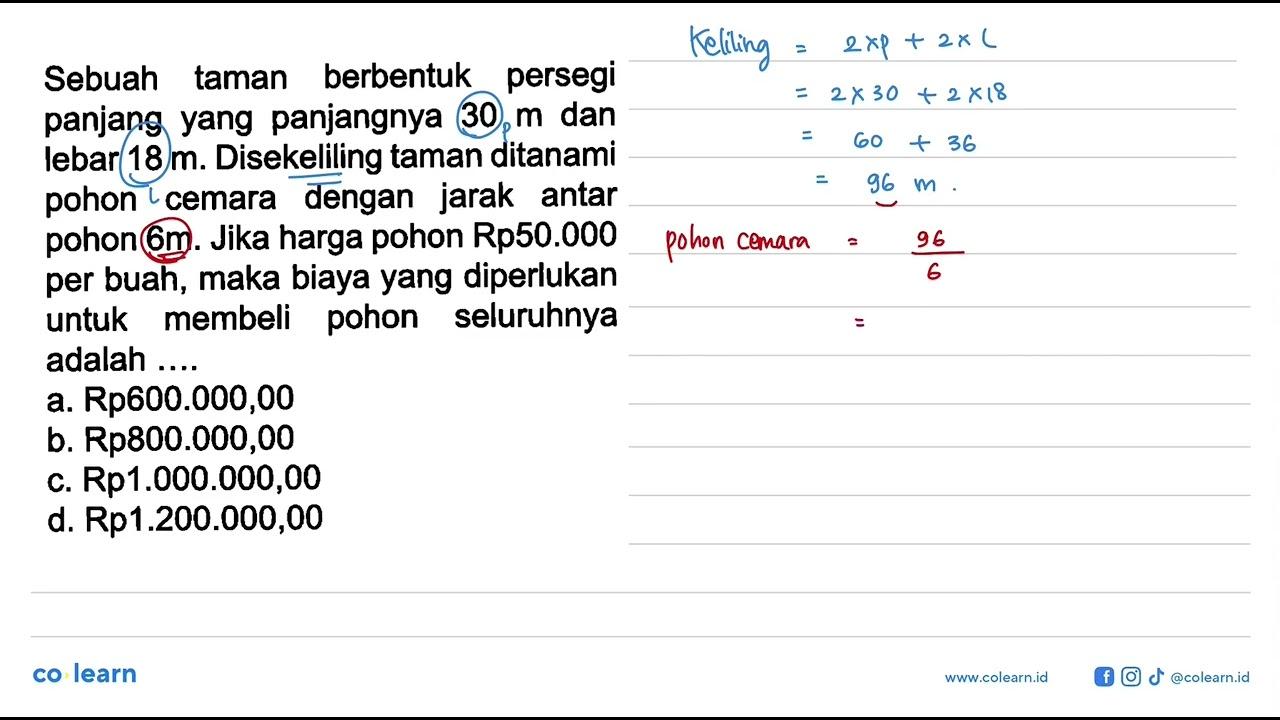 Sebuah taman berbentuk persegi
panjang yang panjangnya 30 m dan
p
lebar 18 m. Disekeliling taman ditanami
pohon cemara dengan jarak antar
l
pohon 6m. Jika harga pohon Rp50.000
per buah, maka biaya yang diperlukan
untuk membeli pohon seluruhnya
adalah ....
a. Rp600.000,00
b. Rp800.000,00
c. Rp1.000.000,00
d. Rp1.200.000,00
Keliling = 2xp + 2x l
= 2 x 30 + 2 x 18
= 60 + 36
= 96 m .
pohon cemara = 96
6
=
co learn
www.colearn.id
@colearn.id